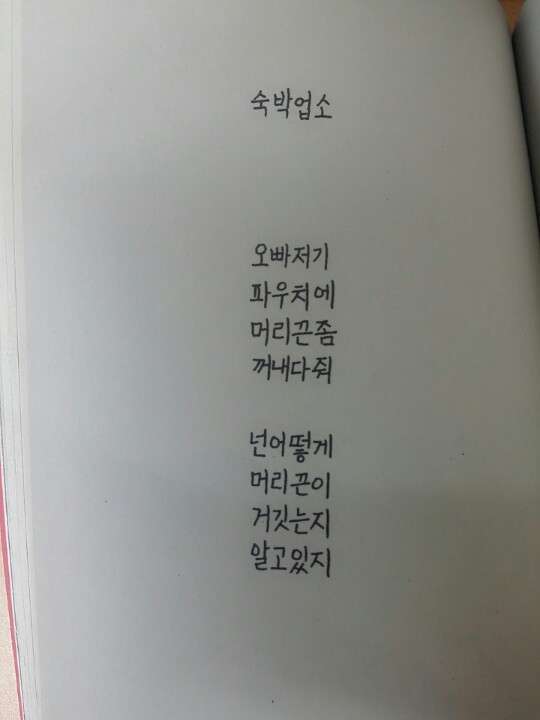 숙박업소
오빠저기
파우치에
머리끈좀
꺼내다줘
넌어떻게
머리끈이
거깃는지
알고있지